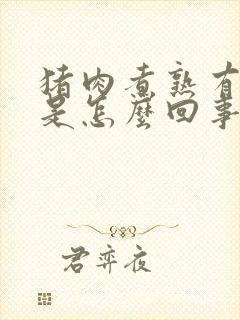 猪肉煮熟有
是怎麼回事
君弈夜